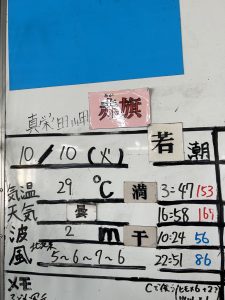 真栄田岬 赤旗
10/10(火) 若潮
気温 29℃ 満 3:47 153
天気 曇 16:58 167
波 2m 干 10:24 56
風 北東 5~6~7~6 22:51 86
メモ